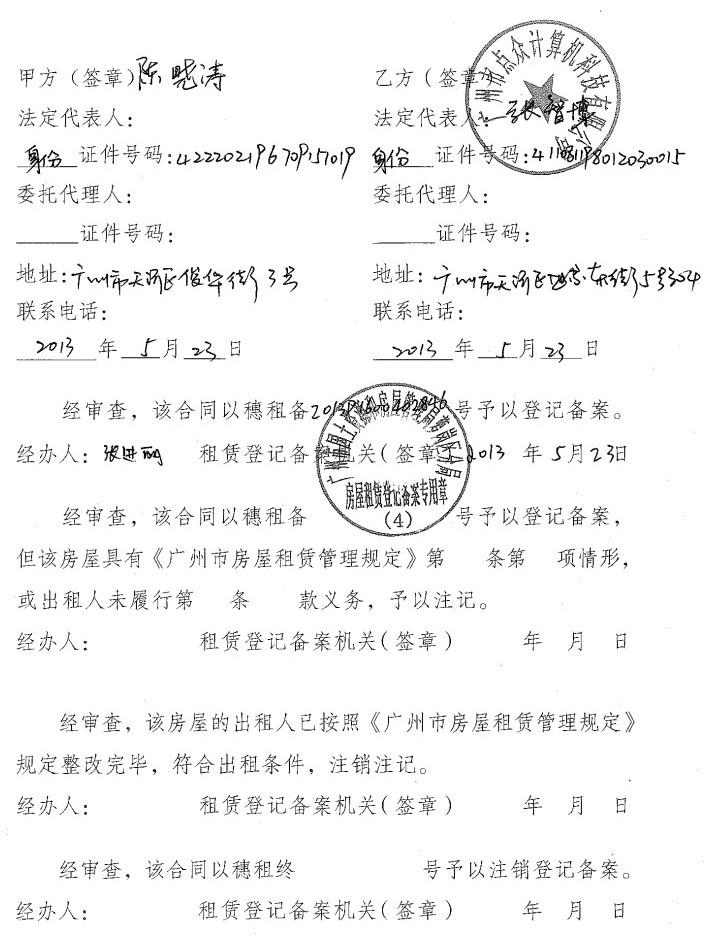 甲方（签章）陈晓涛 乙方（签章）
广州市点众计算机科技有限公司
法定代表人： 法定代表人：张智博
身份 证件号码：422202196709157019 身份 证件号码：411081198012030015
委托代理人： 委托代理人：
______证件号码： ______证件号码：
地址：广州市天河区俊华街3号 地址：广州市天河区 东街5号304
联系电话： 联系电话：
2013 年 5 月 23 日 2013 年 5 月 23 日
经审查，该合同以穗租备2013 号予以登记备案。
经办人：张进丽 租赁登记备案机关（签章） 2013 年 5月23日
房屋租赁登记备案专用章
（4）
经审查，该合同以穗租备 号予以登记备案，
但该房屋具有《广州市房屋租赁管理规定》第 条第 项情形，
或出租人未履行第 条 款义务，予以注记。
经办人： 租赁登记备案机关（签章） 年 月 日
经审查，该房屋的出租人已按照《广州市房屋租赁管理规定》
规定整改完毕，符合出租条件，注销注记。
经办人： 租赁登记备案机关（签章） 年 月 日
经审查，该合同以穗租终 号予以注销登记备案。
经办人： 租赁登记备案机关（签章） 年 月 日